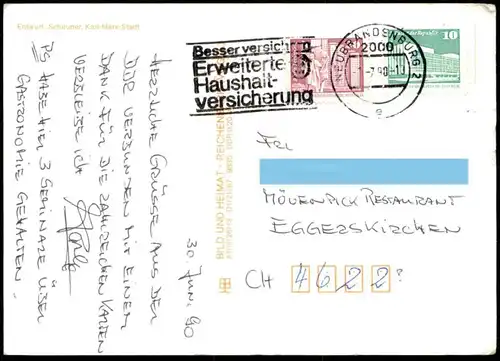 Entwurf: Schreiter, Karl-Marx-Stadt
Besser versichern
Erweiterte
Haushalt-
versicherung
NEUBRANDENBURG 2
2000
-7.90-10
e
10
30. JUNI 90
HERZLICHE GRÜSSE AUS DER
DDR VERBUNDEN MIT EINEM
DANK FÜR DIE ZAHLREICHEN KARTEN
VERBLEIBE ICH
PS HABE HIER 3 SEMINARE ÜBER
GASTRONOMIE GEHALTEN.
BILD UND HEIMAT · REICHENBACH
FRL
MÖVENPICK RESTAURANT
EGGERSKIRCHEN
CH 4622 ?